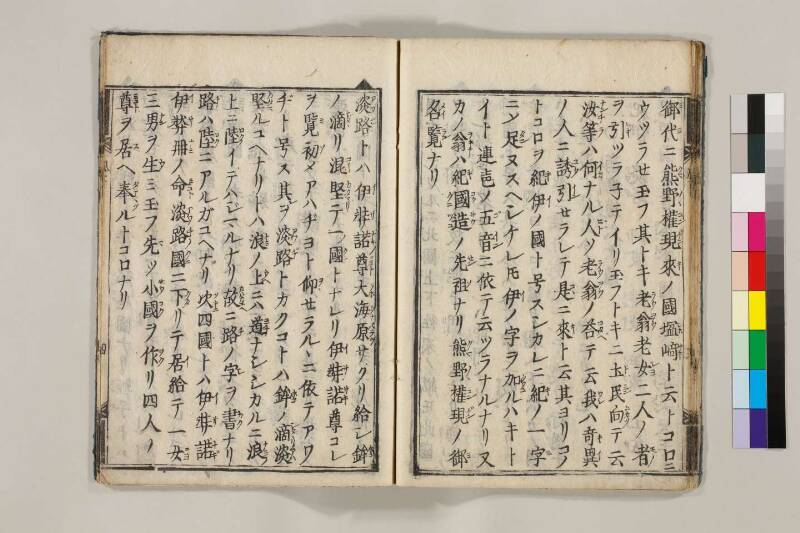 御代ニ熊野權現來ノ國塩﨑ト云トコロニ
ウツラせ玉フ其トキ老翁老女二人ノ者
ヲ引ツラ子テイリ玉フトキニ土民向テ云
汝等ハ何ナル人ソ老翁ノ答テ云我ハ奇異
ノ人ニ誘引せラレテ是ニ來ト云其ヨリコノ
トコロヲ紀伊ノ國ト号スシカレニ紀ノ一字
ニノ足ヌスヘシナレ𪜈伊ノ字ヲ加ルハキト
イト連㐌ノ五音ニ依テ云ツラナルナリ又
カノ翁ハ紀國造ノ先祖ナリ熊野權現ノ御
名覽ナリ
淡路トハ伊弉諾尊大海原サクリ給レ鉾
ノ滴リ混堅テ一國トナレリ伊弉諾尊コレ
ヲ覽初メアハチヨト仰せラル丶ニ依テアワ
ヂト号ス其ヲ淡路トカクコトハ鉾ノ滴淡
堅ルユヘナリトハ浪ノ上ニハ道ナシシカルニ浪
上ニ陸イテハシマルナリ故ニ路ノ字ヲ書ナリ
路ハ陸ニアルガユヘナリ次四國トハ伊弉諾
伊弉冊ノ命淡路國ニ下リテ居給テ一女
三男ヲ生ミ玉フ先ツ小國ヲ作リ四人ノ
尊ヲ居ヘ奉ルトコロナリ